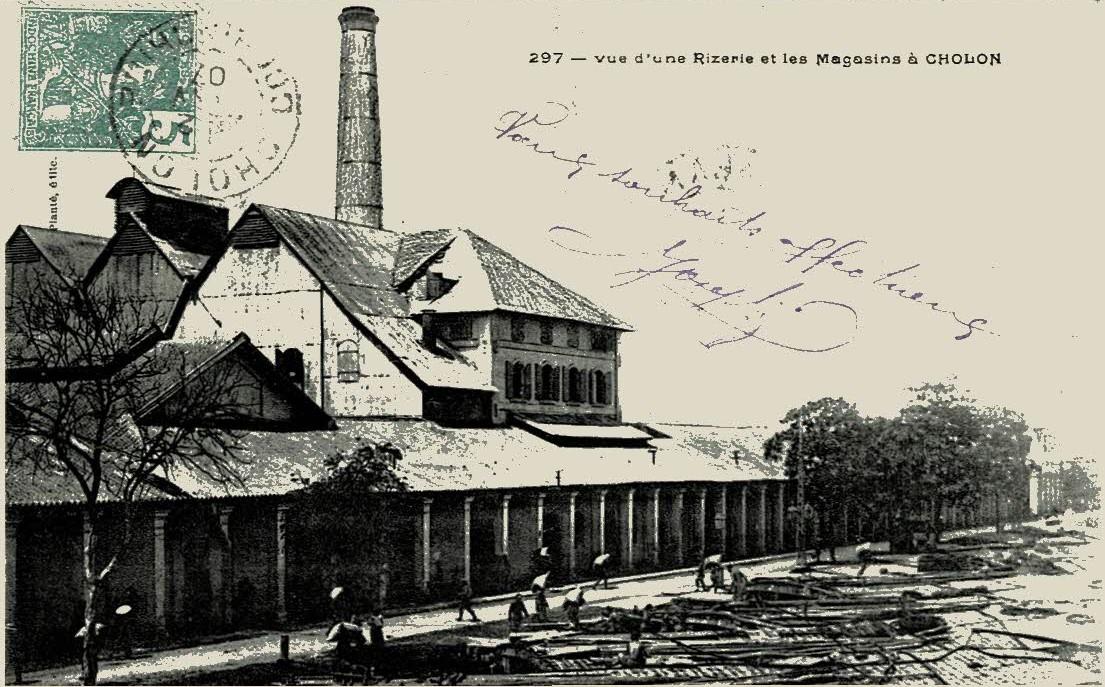 297 — vue d'une Rizerie et les Magasins à CHOLON
INDOCHINE FRANÇAISE
5
CHOLON
Planté, édit.
souhaits affectueux